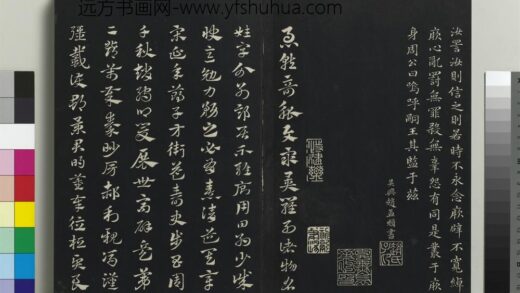 远方书画网-www.yfshuhua.com
汝詈汝則信之則若時不永念厥辟不寬綽
厥心亂罰無罪殺無辜怨有同是叢于厥
身周公曰嗚呼嗣王其監于茲
吳興趙孟頫書
急就奇觚與眾異羅列諸物名
姓字分別部居不雜廁用日約少誠
快意勉力務之必有憙請道其章
宋延年鄭子方衛益壽史步昌周
千秋趙孺卿爰展世高辟兵第
二鄧萬歲秦眇房郝利親馮漢
彊戴護郡景君明董奉德桓賢良